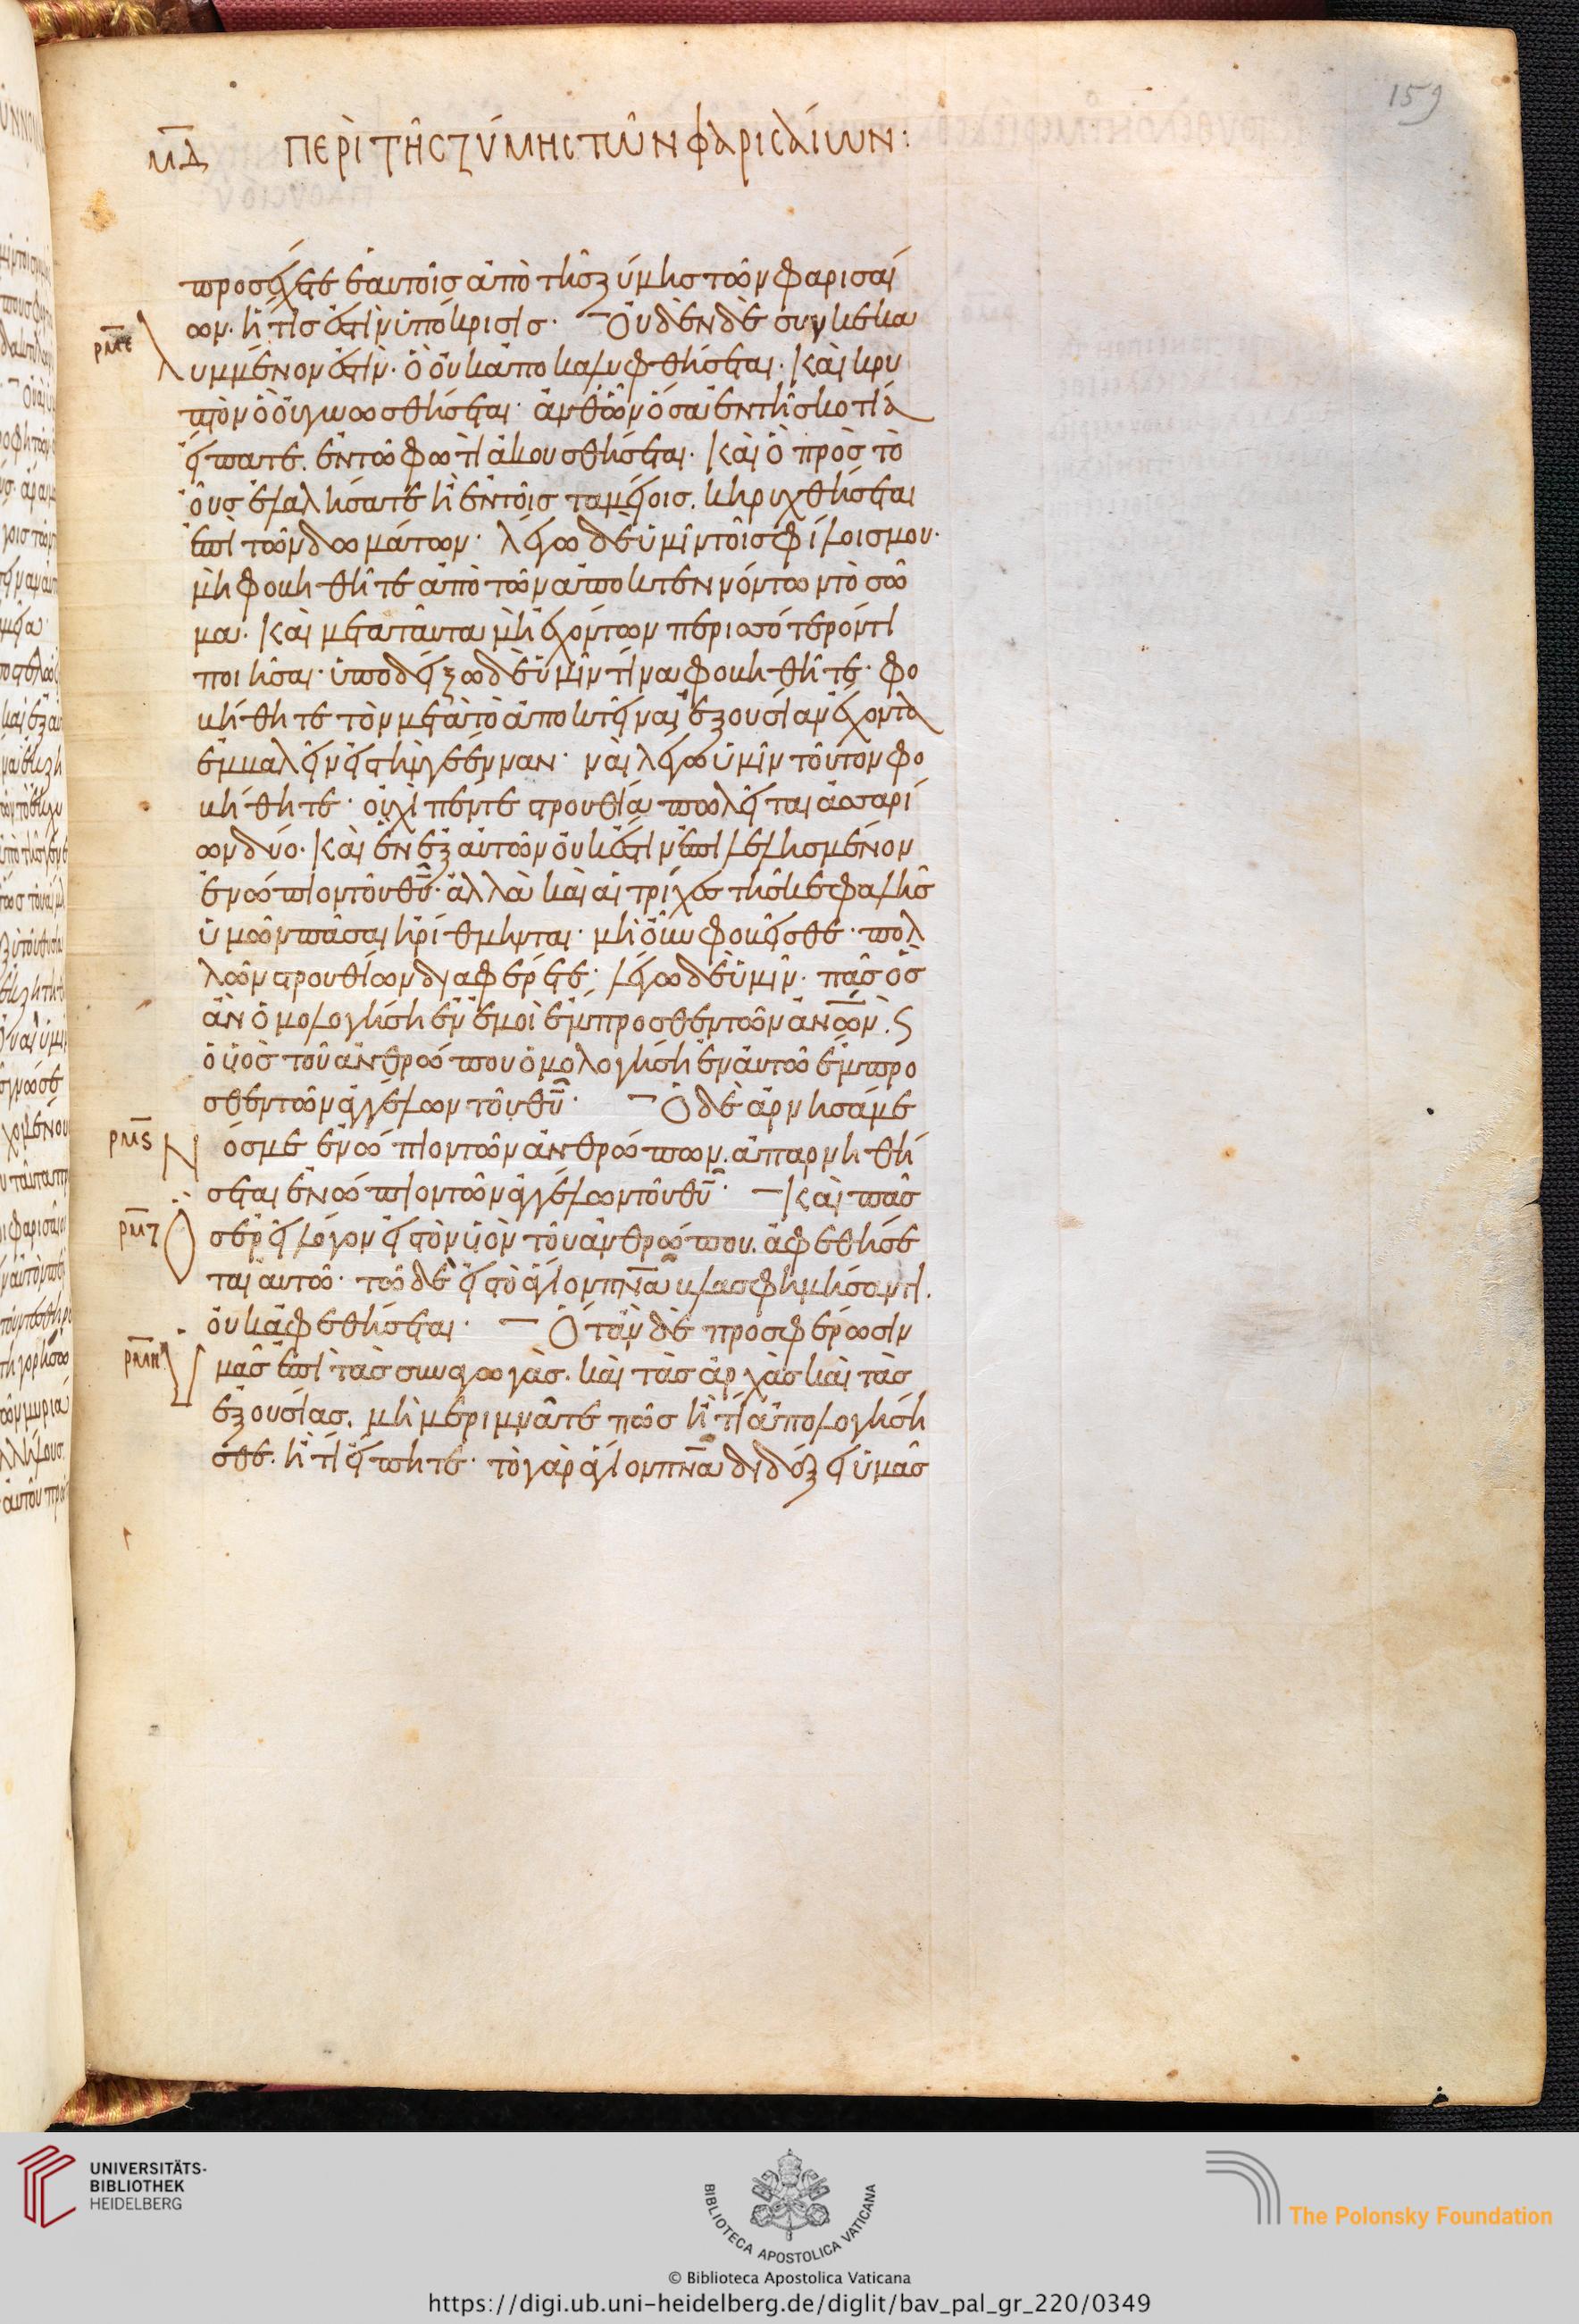 159
μδ ΠΕΡῚ ΤΗ͂Ϲ ΖΎΜΗϹ ΤΩ͂Ν ΦΑΡΙϹΑΊΩΝ:
προσέχετε ἑαυτοῖσ ἀπὸ τῆσ ζύμησ τῶν φαρισαί
ων· ἥτισ ἐστὶν ὑπόκρισισ· Οὐδὲν δὲ συγκεκα
ρμε λυμμένον ἐστὶν· ὃ οὐκ ἀποκαλυφθήσεται· καὶ κρυ
πτὸν ὃ οὐ γνωσθήσεται· ἀνθῶν ὅσα ἐν τῆ σκοτία
εἴπατε. ἐν τῶ φωτὶ ἀκουσθήσεται· καὶ ὃ πρὸσ τὸ
οὖσ ἐλαλήσατε ἢ ἐν τοῖσ ταμείοισ. κηρυχθήσεται
ἐπὶ τῶν δωμάτων· λέγω δὲ ὑμῖν τοῖσ φίλοισ μου·
μὴ φοβηθῆτε ἀπὸ τῶν ἀποκτεννόντων τὸ σῶ
μα· καὶ μετὰ ταῦτα μὴ ἐχόντων περισσότερόν τι
ποιῆσαι· ὑποδείξω δὲ ὑμῖν τίνα φοβηθῆτε· φο
βήθητε τὸν μετὰ τὸ ἀποκτεῖναι ἐξουσίαν ἔχοντα
ἐμβαλεῖν εἰς τὴν γέενναν· ναὶ λέγω ὑμῖν τοῦτον φο
βήθητε· οὐχὶ πέντε στρουθία πωλεῖται ἀσσαρί
ων δύο· καὶ ἓν ἐξ αὐτῶν οὐκ ἔστιν ἐπιλελησμένον
ἐνώπιον τοῦ θυ̅· ἀλλὰ καὶ αἱ τρίχεσ τῆσ κεφαλῆσ
ὑμῶν πᾶσαι ἠρίθμηνται· μὴ οὖν φοβεῖσθε· πολ
λῶν στρουθίων διαφέρετε· λέγω δὲ ὑμῖν· πᾶσ ὃσ
ἂν ὁμολογήση ἐν ἐμοὶ ἔμπροσθεν τῶν ἀν̅ω̅ν. ϛ
ὁ υἱὸσ τοῦ ἀνθρώπου ὁμολογήση ἐν αὐτῶ ἔμπρο
σθεν τῶν ἀγγέλων τοῦ θυ̅· Ὁ δὲ ἀρνησάμε
ρμϛ νόσ με ἐνώπιον τῶν ἀνθρώπων. ἀπαρνηθή
σεται ἐνώπιον τῶν ἀγγέλων τοῦ θυ̅· Καὶ πᾶσ
ρμζ ὃσ ἐρεῖ λόγον εἰς τὸν υἱὸν τοῦ ἀνθρώπου. ἀφεθήσε
ται αὐτῶ· τῶ δὲ εἰς τὸ ἅγιον πν̅α βλασφημήσαντι.
οὐκ ἀφεθήσεται· Ὅταν δὲ προσφέρωσιν
ρμη ὑμᾶσ ἐπὶ τὰσ συναγωγὰσ. καὶ τὰσ ἀρχὰσ καὶ τὰσ
ἐξουσίασ. μὴ μεριμνᾶτε πῶσ ἢ τί ἀπολογήση
σθε. ἢ τί εἴπητε· τὸ γὰρ ἅγιον πν̅α διδάξει ὑμᾶσ
UNIVERSITÄTS-
BIBLIOTHEK
HEIDELBERG
BIBLIOTECA APOSTOLICA VATICANA
The Polonsky Foundation
© Biblioteca Apostolica Vaticana
https://digi.ub.uni-heidelberg.de/diglit/bav_pal_gr_220/0349